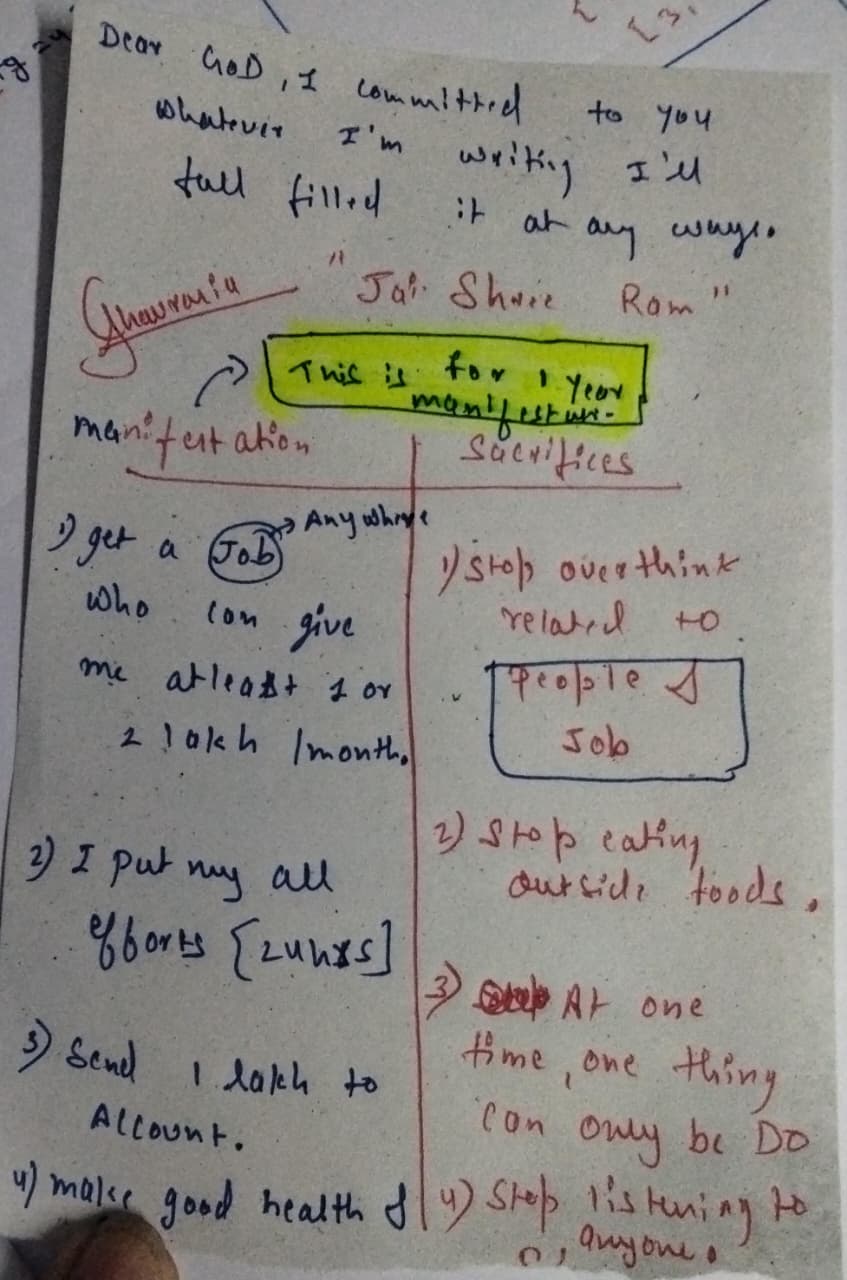 Dear GOD, I committed to you
whatever I'm writing I'll
full filled it at any ways.
"Jai Shree Ram"
This is for 1 Year
manifestation
Sacrifices
1) get a Job → Anywhere
who can give
me atleast 1 or
2 lakh /month.
2) I put my all
efforts [24hrs]
3) Send 1 lakh to
Account.
4) make good health &
1) Stop overthink
related to
People &
Job
2) Stop eating
outside foods.
3) At one
time, one thing
can only be DO
4) Stop listening to
anyone.